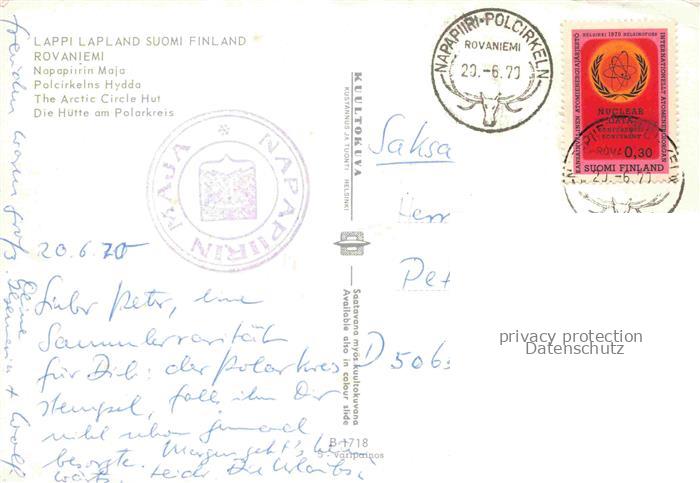 LAPPI LAPLAND SUOMI FINLAND
ROVANIEMI
Napapiirin Maja
Polcirkelns Hydda
The Arctic Circle Hut
Die Hütte am Polarkreis
NAPAPIIRIN MAJA *
20.6.70
Lieber Peter, eine
Sammlerrarität
für Dich: der Polarkreis
stempel, falls ihn Dir
nicht schon jemand
besorgte. Morgen geht's heim
wärts. Leider. Die
Freuden waren groß.
Deine
+ Wolf
KUULTOKUVA
KUSTANNUS JA TUONTI HELSINKI
Saatavana myös kuultokuvana
Available also in colour slide
B 1718
S · Väripainos
NAPAPIIRI·POLCIRKELN
ROVANIEMI
20.-6.70
HELSINKI 1970 HELSINGFORS
KANSAINVÄLINEN ATOMIENERGIAJÄRJESTÖ
INTERNATIONELLT ATOMENERGIORGAN
NUCLEAR
DATA
0,30
SUOMI FINLAND
20.-6.70
Saksa
Herr
Pet
D 506
privacy protection
Datenschutz